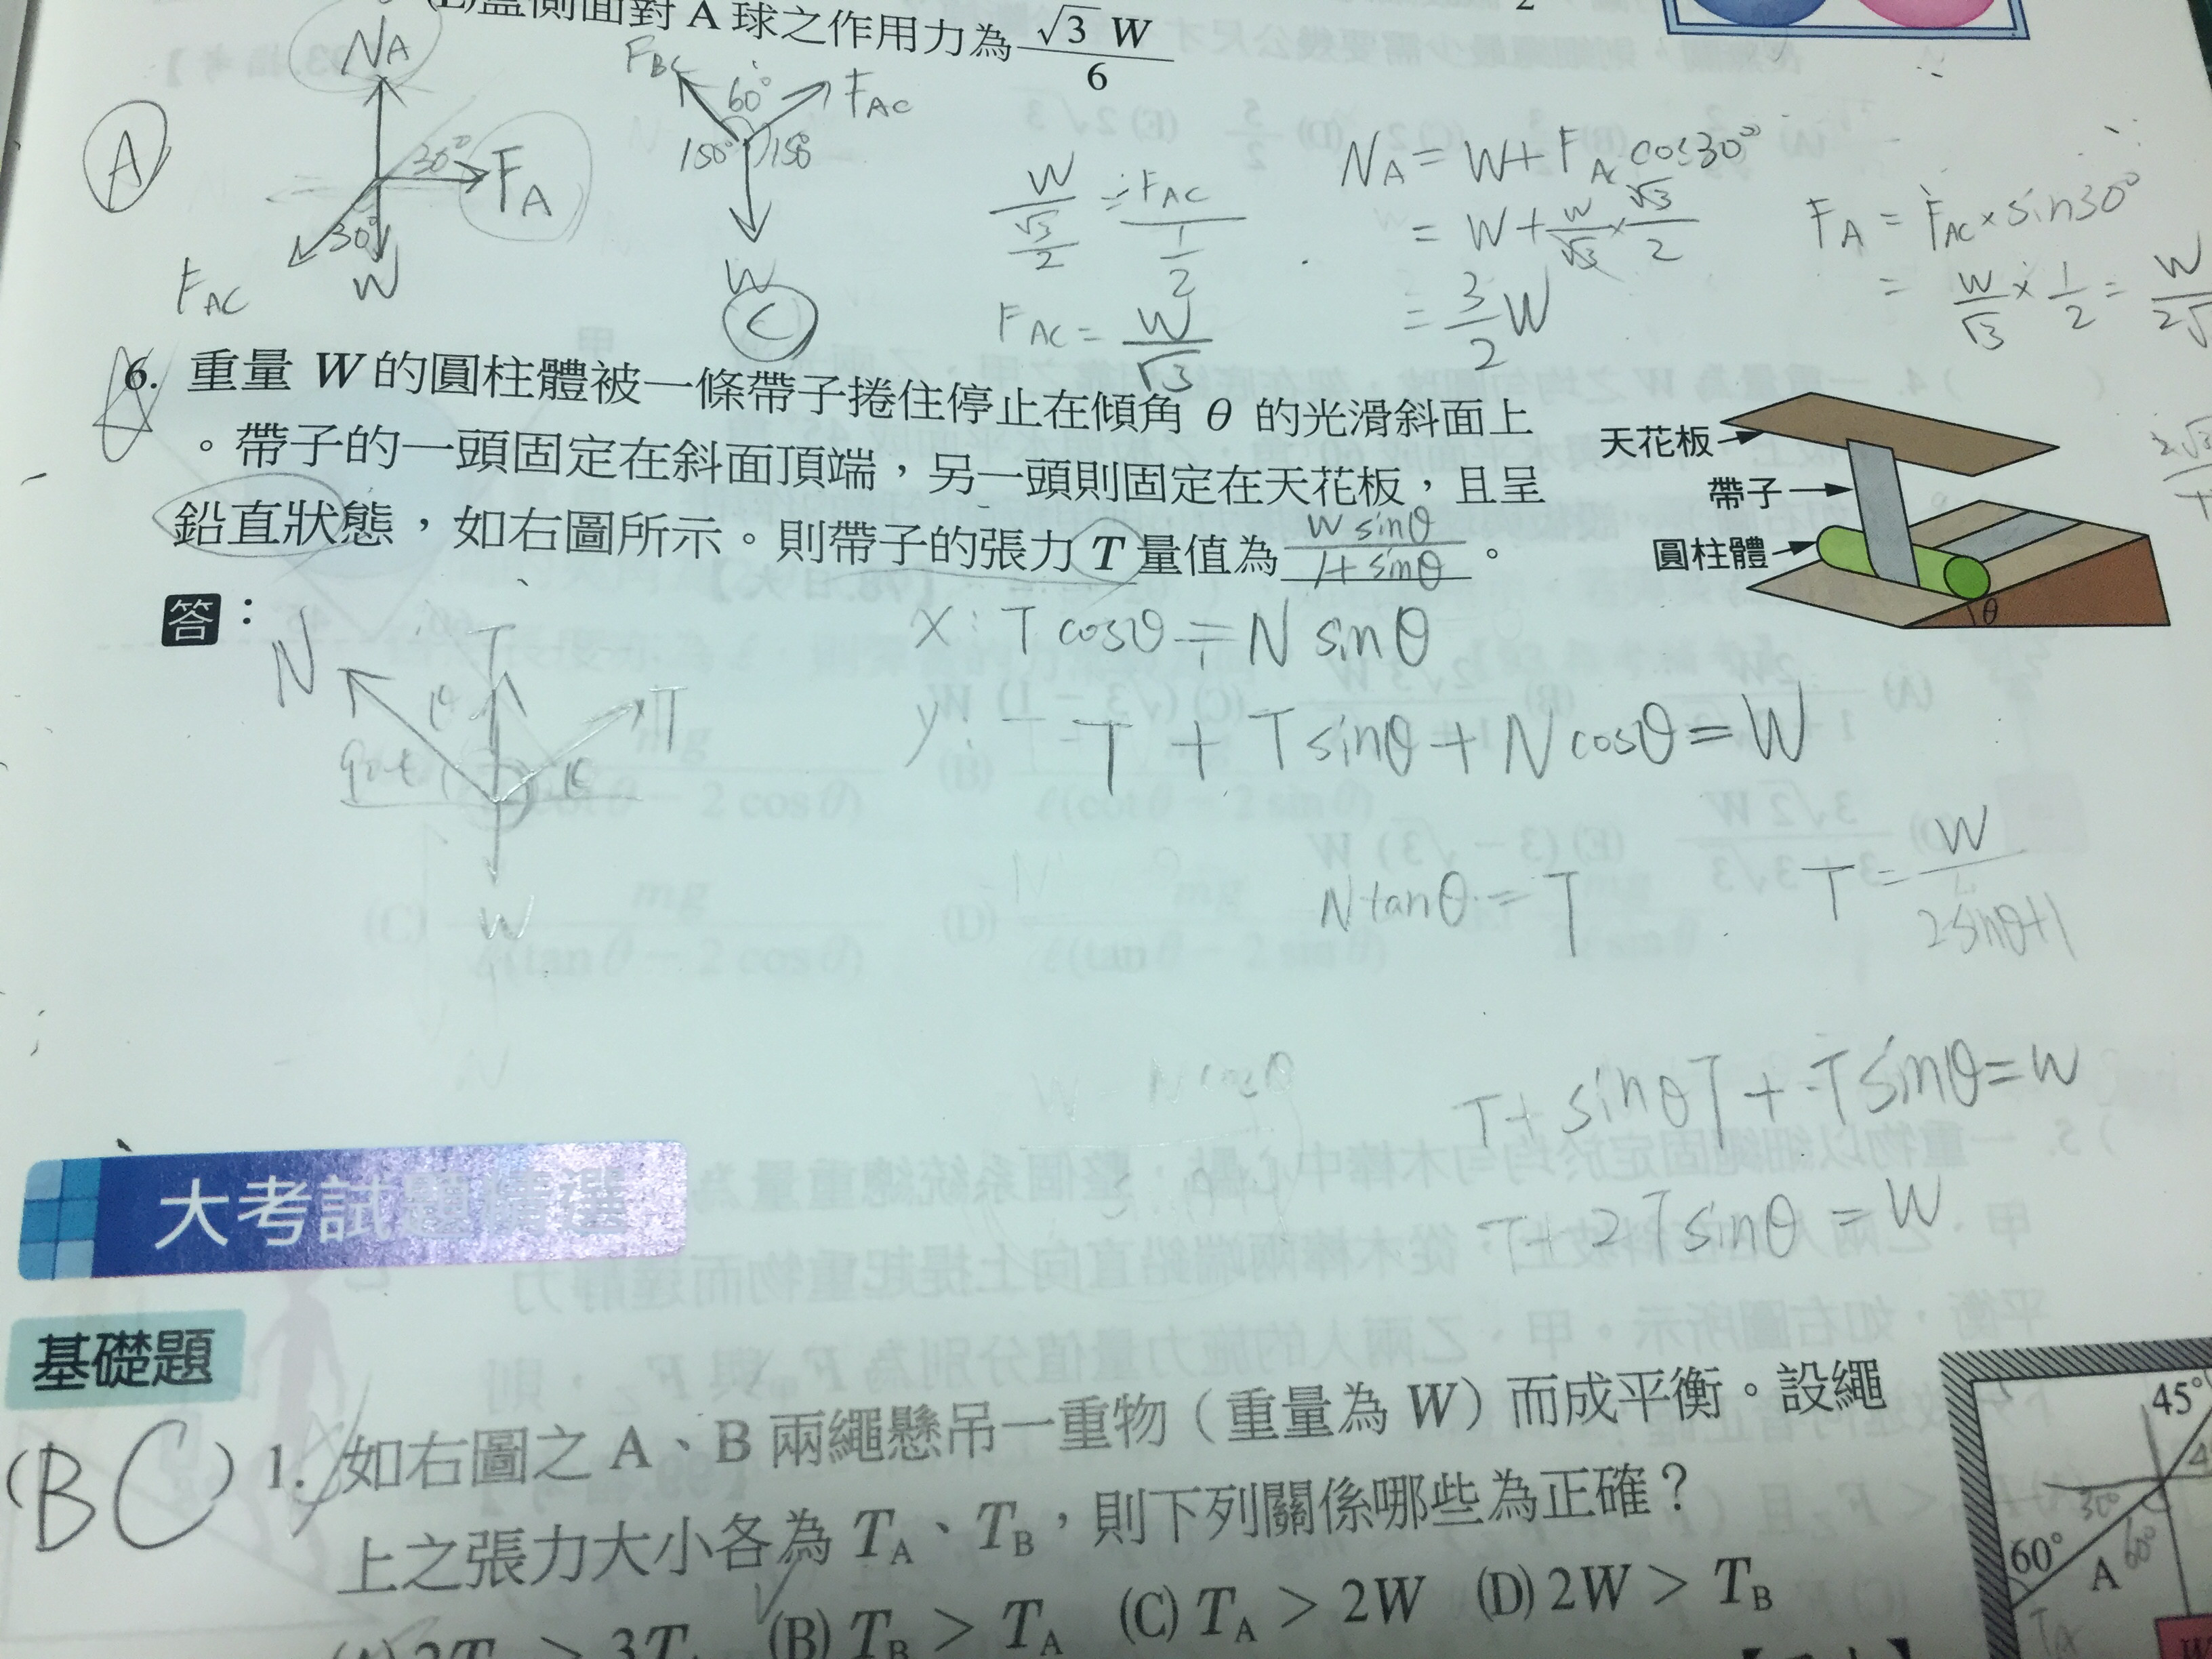 側面對 A 球之作用力為 √3 W / 6
N_A
F_A
30°
30°
F_AC
W
A
F_BC
60°
F_AC
150°
150°
W
C
W / (√3/2) = F_AC / (1/2)
F_AC = W/√3
N_A = W + F_AC cos30°
= W + W/√3 × √3/2
= 3/2 W
F_A = F_AC × sin30°
= W/√3 × 1/2 =
6. 重量 W 的圓柱體被一條帶子捲住停止在傾角 θ 的光滑斜面上
。帶子的一頭固定在斜面頂端，另一頭則固定在天花板，且呈
鉛直狀態，如右圖所示。則帶子的張力 T 量值為 W sinθ / 1+sinθ 。
天花板
帶子
圓柱體
θ
答：
N
T
T
θ
W
x: T cosθ = N sinθ
y: T + T sinθ + N cosθ = W
N tanθ = T
T = W / 2sinθ+1
W - N cosθ
T + sinθT + T sinθ = W
T + 2T sinθ = W
大考試題精選
基礎題
(BC) 1. 如右圖之 A、B 兩繩懸吊一重物（重量為 W）而成平衡。設繩
上之張力大小各為 T_A、T_B，則下列關係哪些為正確？
(B) T_B > T_A (C) T_A > 2W (D) 2W > T_B
45°
30°
60°
60°
A